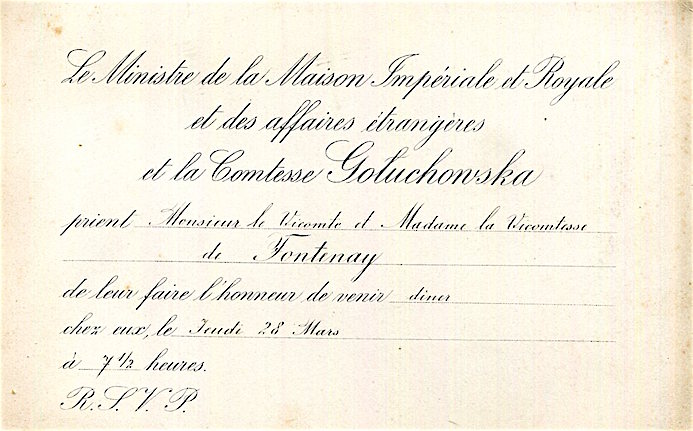 Le Ministre de la Maison Impériale et Royale
et des affaires étrangères
et la Comtesse Gołuchowska
prient Monsieur le Vicomte et Madame la Vicomtesse
de Fontenay
de leur faire l'honneur de venir diner
chez eux, le Jeudi 28 Mars
à 7 1/2 heures.
R. S. V. P.